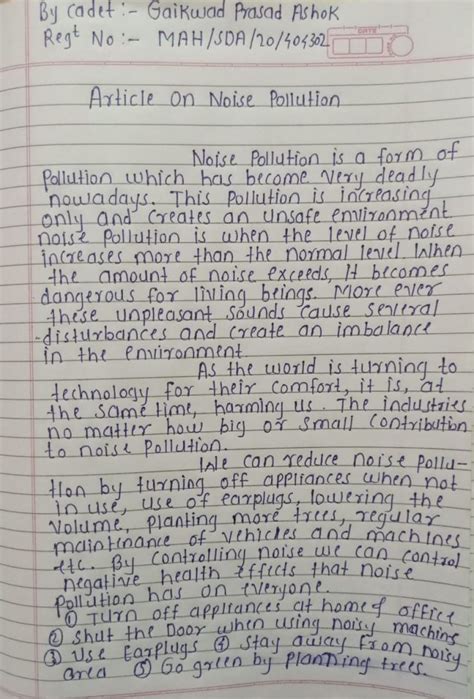 By Cadet :- Gaikwad Prasad Ashok
Regt No :- MAH/SDA/20/404302
DATE
Article On Noise Pollution
Noise Pollution is a form of
Pollution which has become very deadly
nowadays. This Pollution is increasing
only and creates an unsafe environment
noise Pollution is when the level of noise
increases more than the normal level. When
the amount of noise exceeds, It becomes
dangerous for living beings. More ever
these unpleasant sounds cause several
disturbances and create an imbalance
in the environment.
As the world is turning to
technology for their comfort, it is, at
the same time, harming us. The industries
no matter how big or small contribution
to noise Pollution.
We can reduce noise Pollu-
tion by turning off appliances when not
in use, use of earplugs, lowering the
volume, planting more trees, regular
maintinance of vehicles and machines
etc. By controlling noise we can control
negative health effects that noise
Pollution has on everyone.
① Turn off appliances at home & office
② Shut the Door when using noisy machins
③ Use Earplugs ④ Stay away from noisy
area ⑤ Go green by planning trees.